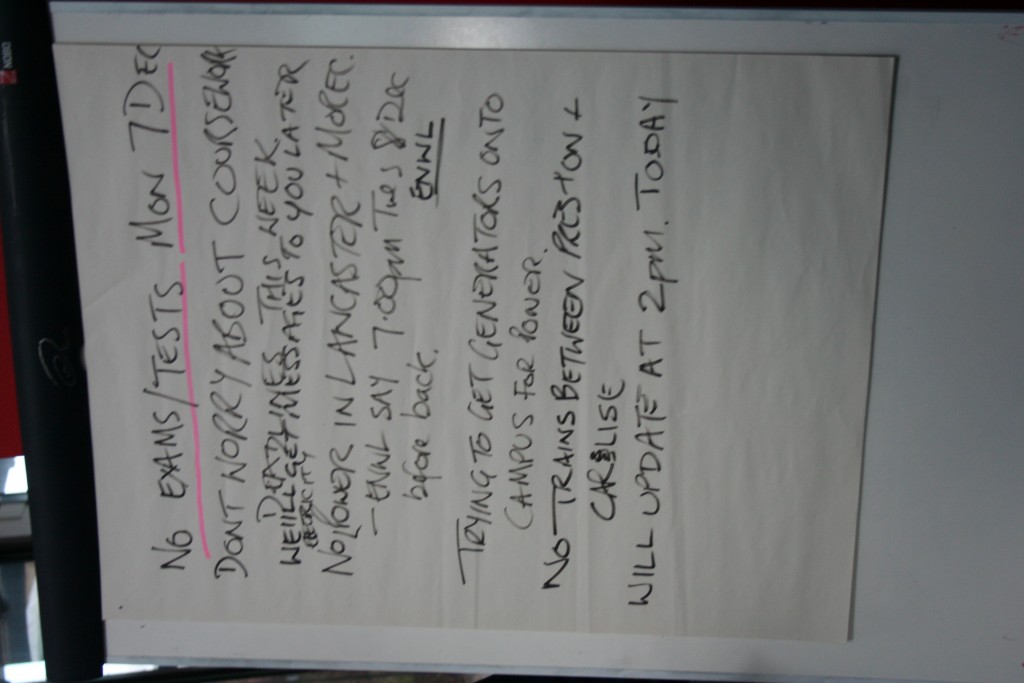 NO EXAMS/TESTS MON 7 DEC
DONT WORRY ABOUT COURSEWORK
DEADLINES THIS WEEK
WE'LL GET MESSAGES TO YOU LATER
ELECTRICITY
NO POWER IN LANCASTER + MOREC.
- ENWL SAY 7.00pm Tues 8 Dec
before back. ENWL
TRYING TO GET GENERATORS ONTO
CAMPUS FOR POWER.
NO TRAINS BETWEEN PRESTON +
CARLISE
WILL UPDATE AT 2pm. TODAY
NOBO